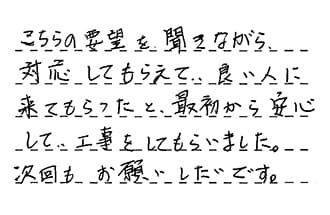 こちらの要望を聞きながら、
対応してもらえて、良い人に
来てもらったと、最初から安心
して、工事をしてもらいました。
次回もお願いしたいです。